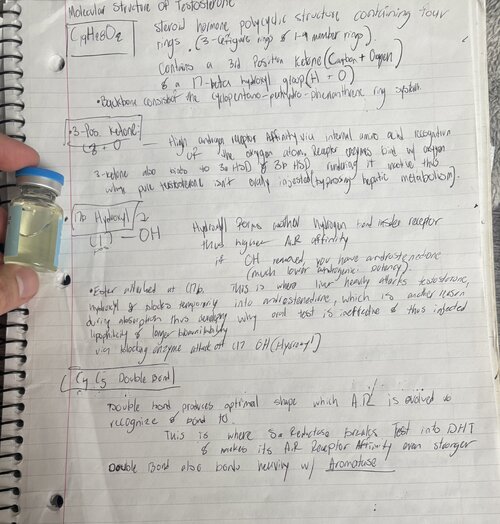 Molecular Structure Of Testosterone
C19H28O2
steroid hormone polycyclic structure containing four
rings. (3-6 figure rings & 1-5 number ring).
Contains a 3rd Position Ketone (Carbon + Oxygen)
& a 17-beta hydroxyl group (H + O)
• Backbone consists the cyclopentano-perhydro-phenanthrene ring system.
• 3-Pos. Ketone:
C3 + O
High androgen receptor Affinity via internal amino acid recognition
of the oxygen atom, Receptor enzymes bind w/ oxygen
3-ketone also binds to 3a HSD & 3B HSD rendering it inactive thus
where pure testosterone isn't orally ingested (bypassing hepatic metabolism).
17b Hydroxyl
C17 — OH
Hydroxyl forms another hydrogen bond inside receptor
thus higher A.R affinity
if OH removed, you have androstenedione
(much lower androgenic potency).
• Ester attached at 17b. This is where liver heavily attacks testosterone,
hydroxyl & blocks temporarily into androstenedione, which is another reason
during absorption thus why oral test is ineffective & thus injected
lipophilicity & lower bioavailability
via blocking enzyme attack at 17 OH (Hydroxyl)
C4 C5 Double Bond
Double bond produces optimal shape which A.R is evolved to
recognize & bond to.
This is where 5a Reductase breaks Test into DHT
& makes its A.R Receptor Affinity even stronger
Double Bond also bonds heavily w/ Aromatase